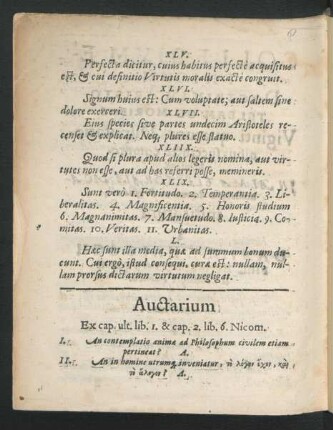 XLV.
Perfecta dicitur, cuius habitus perfectè acquisitus
est, & cui definitio Virtutis moralis exactè congruit.
XLVI.
Signum huius est: Cum voluptate; aut saltem sine
dolore exerceri.
XLVII.
Eius species sive partes undecim Aristoteles re-
censet & explicat. Neq; plures esse statuo.
XLIIX.
Quod si plura apud alios legeris nomina, aut vir-
tutes non esse, aut ad has referri posse, memineris.
XLIX.
Sunt verò 1. Fortitudo. 2. Temperantia. 3. Li-
beralitas. 4. Magnificentia. 5. Honoris studium
6. Magnanimitas. 7. Mansuetudo. 8. Iustitia. 9. Co-
mitas. 10. Veritas. 11. Urbanitas.
L.
Hæc sunt illa media, quæ ad summum bonum du-
cunt. Cui ergò, istud consequi, curæ est: nullam, nul-
lam prorsus dictarum virtutum negligat.
Auctarium
Ex cap. ult. lib. 1. & cap. 2. lib. 6. Nicom.
I. An contemplatio animæ ad Philosophum civilem etiam
pertineat? A.
II. An in homine utrumq; inveniatur, τὸ λόγον ἔχον, καὶ
τὸ ἄλογον? A.